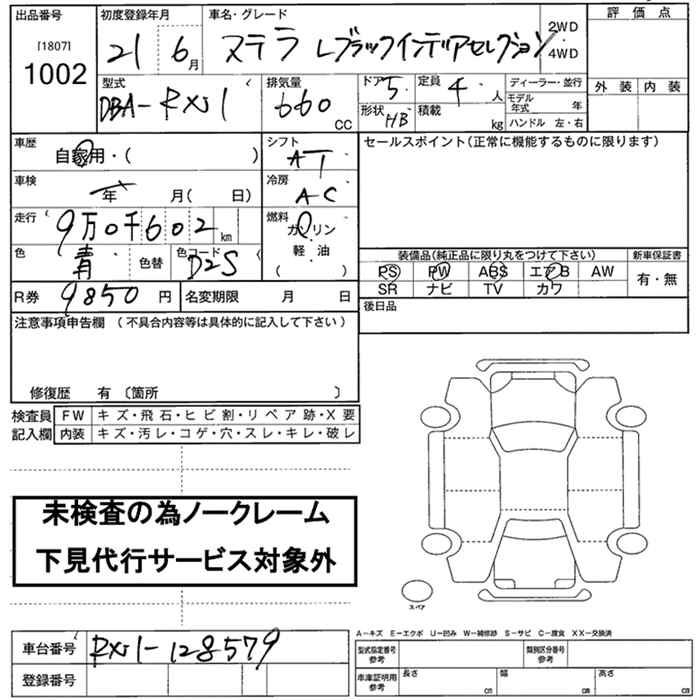 出品番号 初度登録年月 車名・グレード 評価点
[1807] 1002 21 6月 ステラ Lブラックインテリアセレクション 2WD・4WD
外装 内装
型式 DBA-RX51 排気量 660 CC ドア 5 定員 4人 ディーラー・並行
形状 HB 積載 kg モデル年式 年
ハンドル 左・右
車歴 自家用・( ) シフト AT セールスポイント(正常に機能するものに限ります)
車検 年 月( 日) 冷房 AC
走行 9万0千602km 燃料 ガソリン
軽・油
( )
色 青 色替 色コード D2S 装備品(純正品に限り丸をつけて下さい) 新車保証書
PS PW ABS エアB AW 有・無
SR ナビ TV カワ
R券 9850円 名変期限 月 日 後日品
注意事項申告欄(不具合内容等は具体的に記入して下さい)
修復歴 有〔箇所 〕
検査員 FW キズ・飛石・ヒビ割・リペア跡・X要
記入欄 内装 キズ・汚レ・コゲ・穴・スレ・キレ・破レ
未検査の為ノークレーム
下見代行サービス対象外
スペア
A-キズ E-エクボ U-凹み W-補修跡 S-サビ C-腐食 XX-交換済
車台番号 RXS1-128579 型式指定番号 参考 類別区分番号 参考
登録番号 車庫証明用 参考 長さ cm 幅 cm 高さ cm